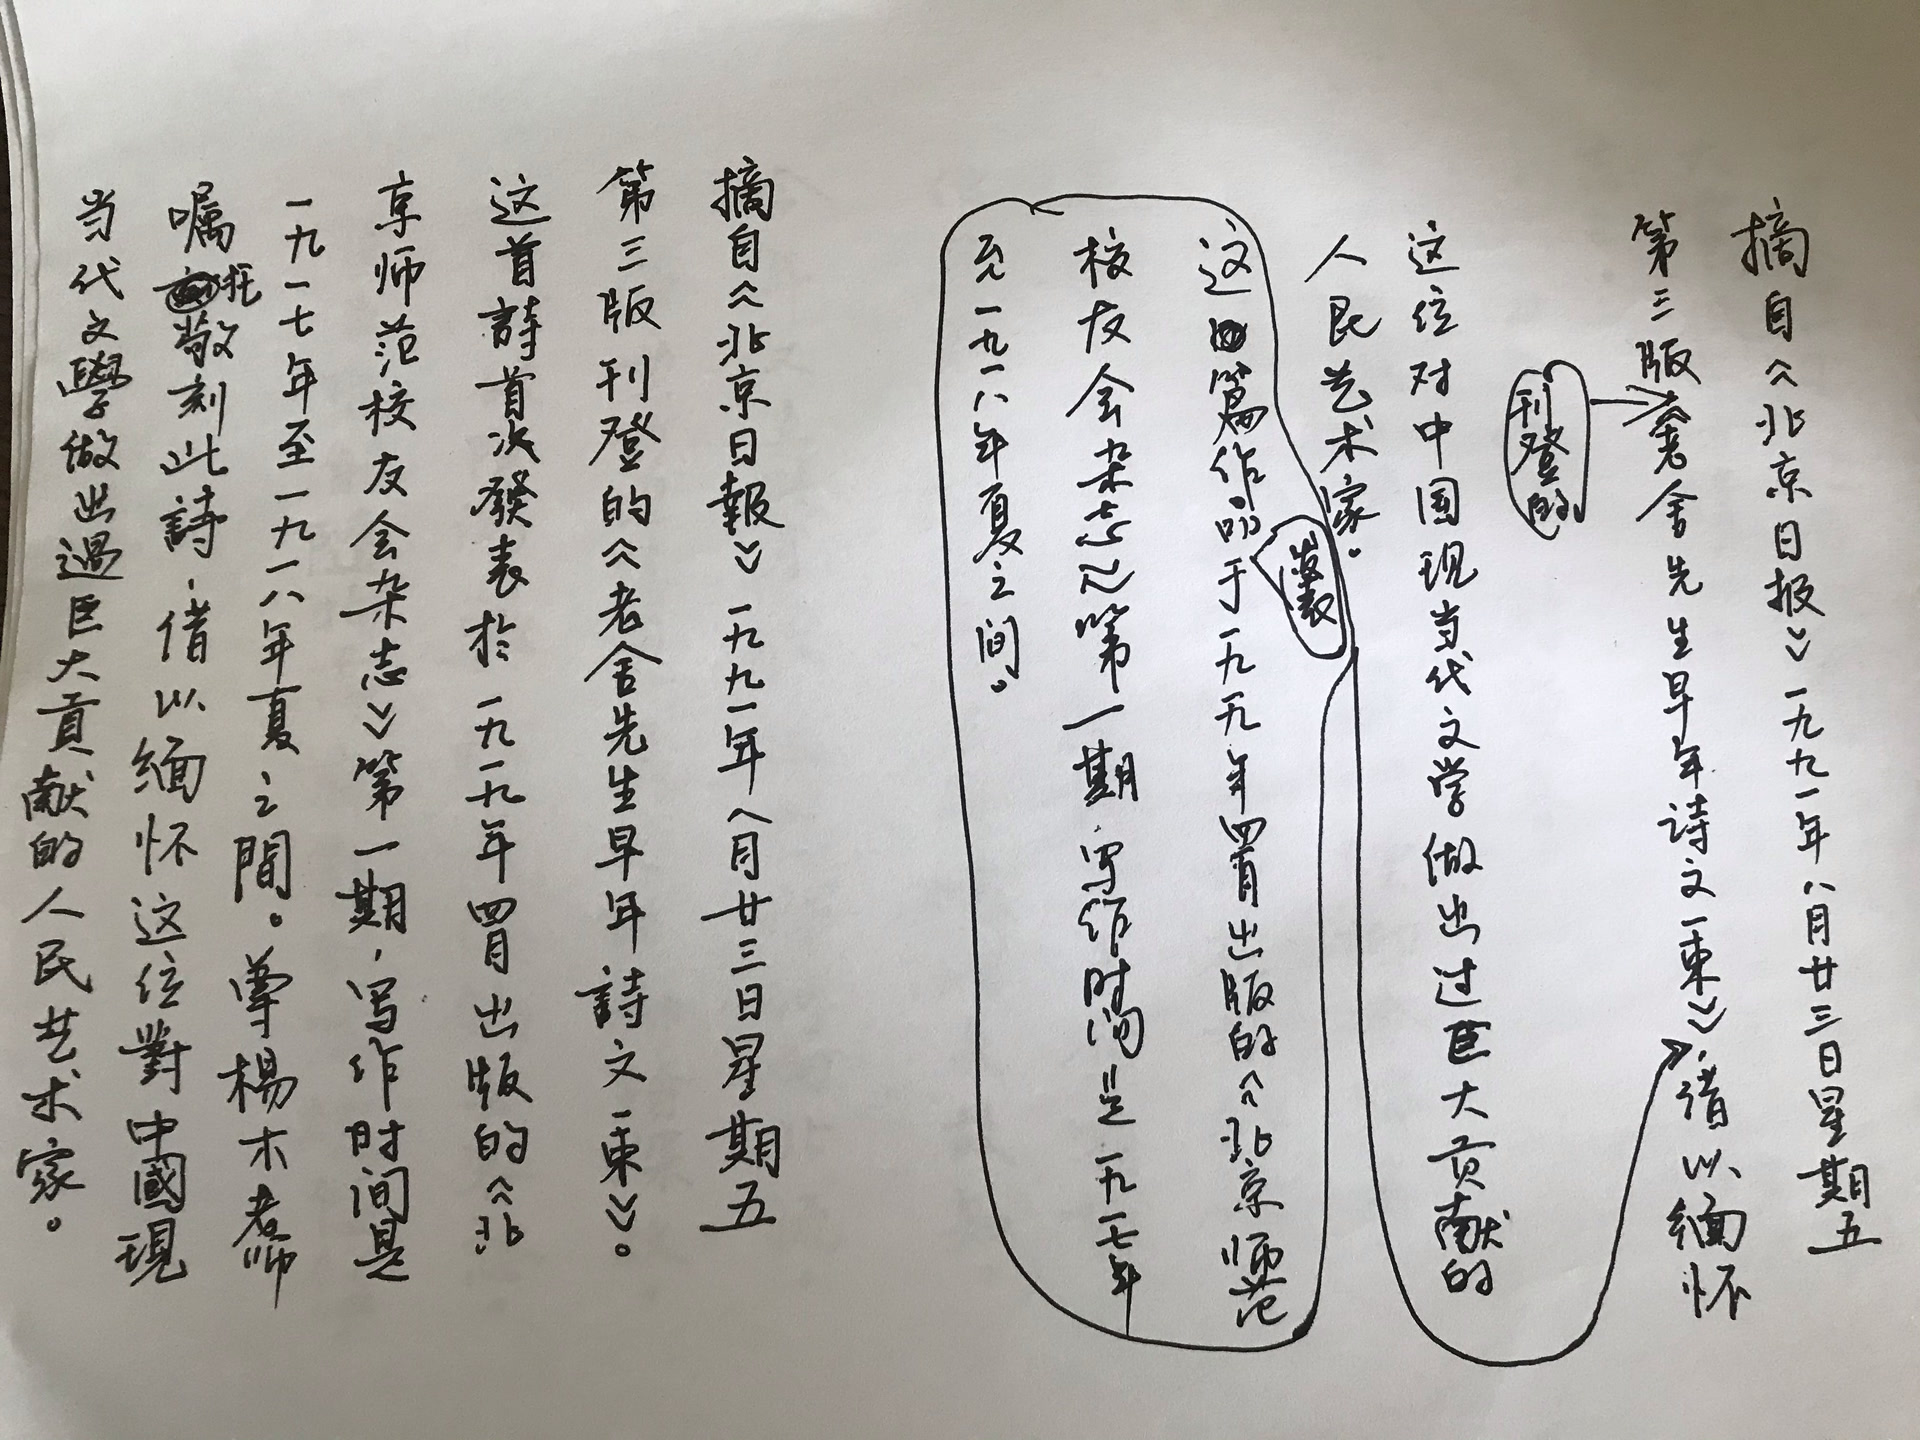 摘自《北京日报》一九九一年八月廿三日星期五
第三版《老舍先生早年诗文一束》,借以缅怀
刊登的
这位对中国现当代文学做出过巨大贡献的
人民艺术家。
发表
这篇作品于一九一九年四月出版的《北京师范
校友会杂志》第一期,写作时间是一九一七年
至一九一八年夏之间。
摘自《北京日報》一九九一年八月廿三日星期五
第三版刊登的《老舍先生早年詩文一束》。
这首詩首次發表於一九一九年四月出版的《北
京师范校友会杂志》第一期,写作时间是
一九一七年至一九一八年夏之間。尊楊木老师
嘱托敬刻此詩,借以缅怀这位對中國現
当代文學做出過巨大貢献的人民艺术家。